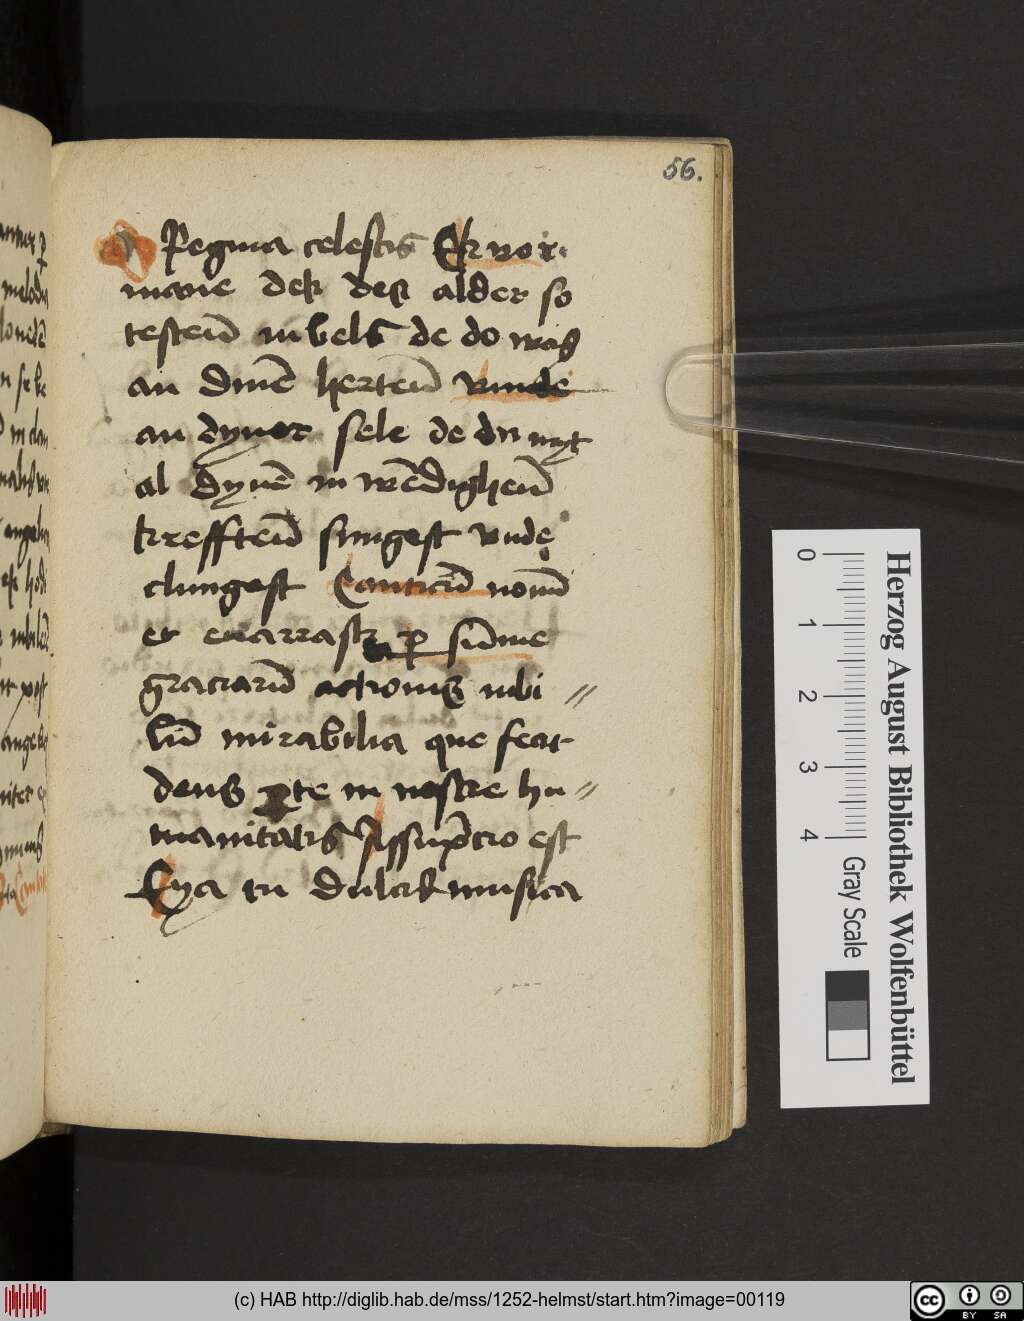 56.
O Regina celestis Ek vor
mane dek der alder so
testen iubels de do was
an dinē herten vnde
an dyner sele de du myt
al dynē in wēdighen
krefften singest vnde
clingest Canticū nouū
et enarrastz ꝑ sūme
graciarū actionis iubi //
lū mirabilia que fecit
deus ꝑte in nostre hu //
manitatis Assūpcio est
Eya tu dulcis musica
Herzog August Bibliothek Wolfenbüttel
0 1 2 3 4
Gray Scale
(c) HAB http://diglib.hab.de/mss/1252-helmst/start.htm?image=00119
cc BY SA